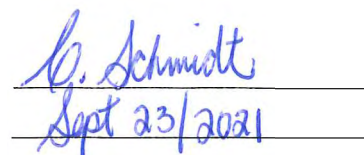 C. Schmidt
Sept 23/2021